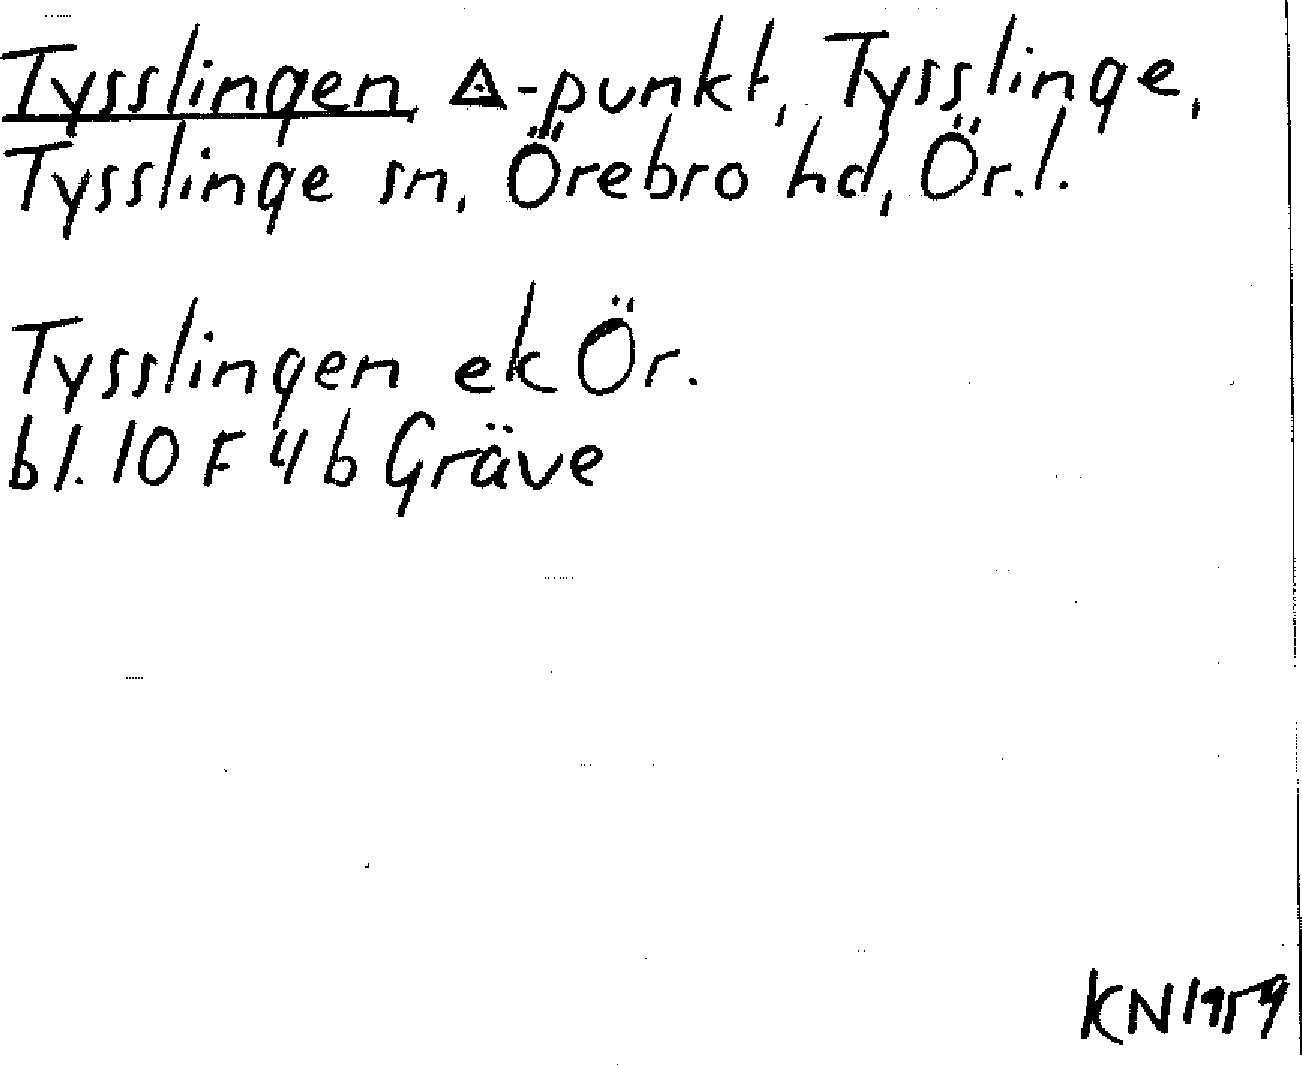 Tysslingen △-punkt, Tysslinge,
Tysslinge sn, Örebro hd, Ör.l.
Tysslingen ek Ör.
bl. 10 F 4 b Gräve
KN 1959